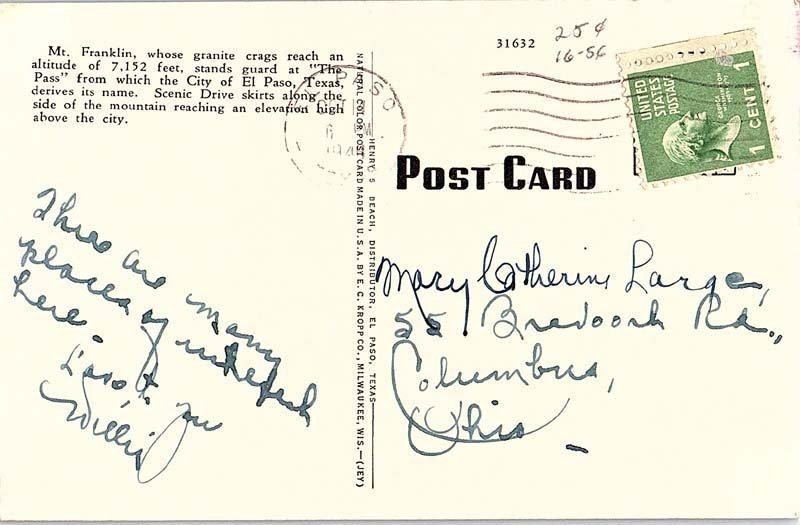 Mt. Franklin, whose granite crags reach an
altitude of 7,152 feet, stands guard at "The
Pass" from which the City of El Paso, Texas,
derives its name. Scenic Drive skirts along the
side of the mountain reaching an elevation high
above the city.
There are many
places of interest
here.
Willis
NATIONAL COLOR POST CARD MADE IN U.S.A. BY E. C. KROPP CO., MILWAUKEE, WIS.—(JEY)
HENRY S BEACH, DISTRIBUTOR, EL PASO, TEXAS
PASO
31632
25¢
16-56
UNITED
STATES
POSTAGE
1 CENT 1
POST CARD
Mary Catherine Large,
55 Rd.,
Columbus,
Ohio